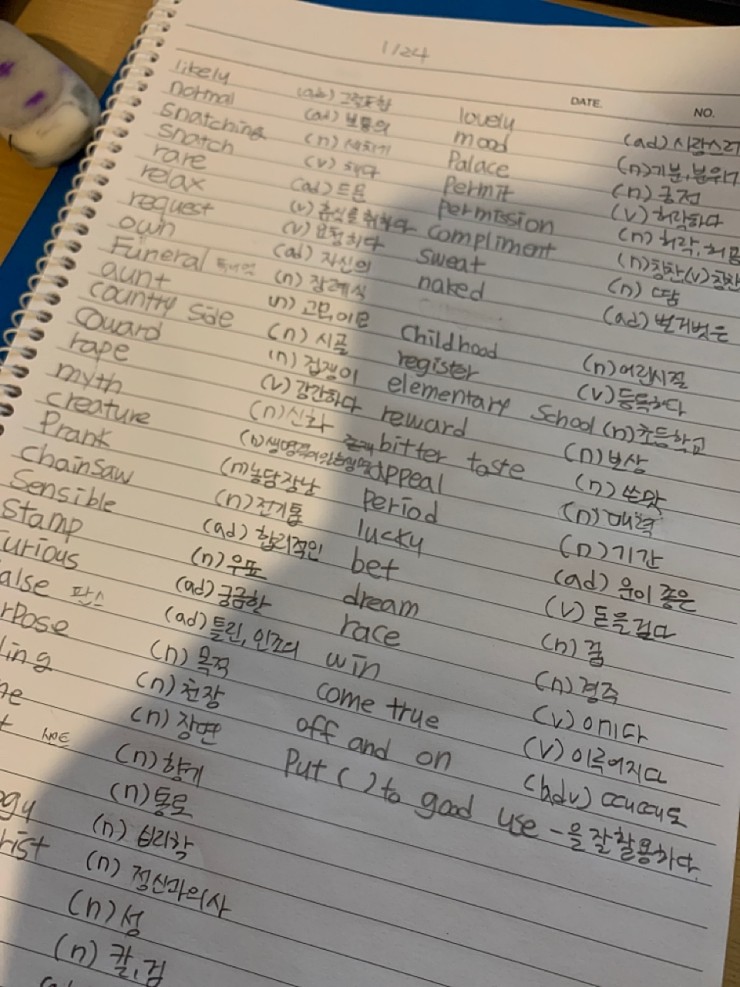 1/24
DATE. NO.
likely (ad) 그럴듯한
normal (ad) 보통의
snatching (n) 새치기
snatch (v)
rare (ad) 드문
relax (v) 휴식을 취하다
request (v) 요청하다
own (ad) 자신의
Funeral (n) 장례식
aunt (n) 고모, 이모
country side (n) 시골
coward (n) 겁쟁이
rape (v) 강간하다
myth (n) 신화
creature (n)
Prank (n) 농담 장난
chainsaw (n) 전기톱
Sensible (ad) 합리적인
stamp (n) 우표
urious (ad) 궁금한
alse 판스 (ad) 틀린, 인조의
rpose (n) 목적
ling (n) 천장
ne (n) 장면
t (n) 향기
(n) 통로
ogy (n) 심리학
rist (n) 정신과의사
(n) 성
(n) 칼, 검
lovely (ad) 사랑스러
mood (n) 기분, 분위기
Palace (n) 궁전
Permit (v) 허락하다
permission (n) 허락, 허
compliment (n) 칭찬 (v) 칭찬
sweat (n) 땀
naked (ad) 벌거벗은
childhood (n) 어린시절
register (v) 등록하다
elementary school (n) 초등학교
reward (n) 보상
bitter taste (n) 쓴맛
appeal (n) 매력
period (n) 기간
lucky (ad) 운이 좋은
bet (v) 돈을 걸다
dream (n) 꿈
race (n) 경주
win (v) 이기다
come true (v) 이루어지다
off and on (adv) 때때로
Put ( ) to good use -을 잘 활용하다.